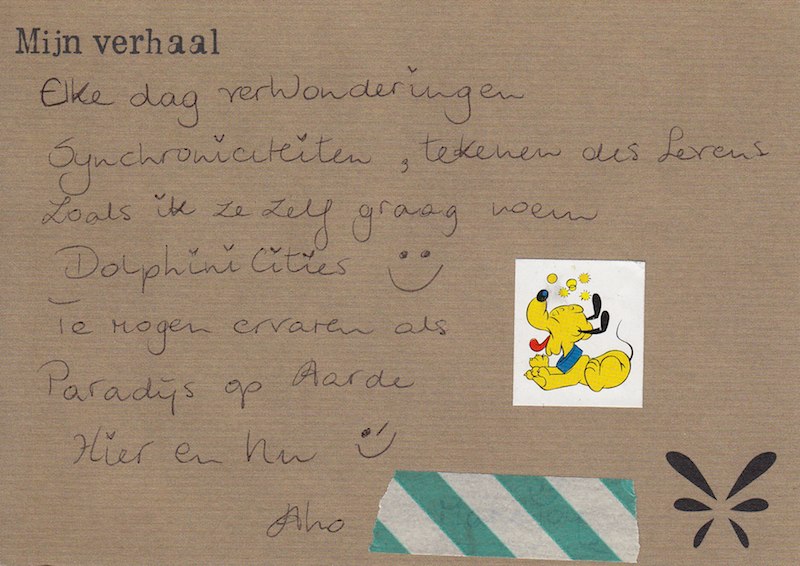 Mijn verhaal
Elke dag verWonderingen
Synchroniciteiten, tekenen des Levens
Zoals ik ze zelf graag noem
Dolphini Cities
Te Mogen ervaren als
Paradijs op Aarde
Hier en Nu
Aho